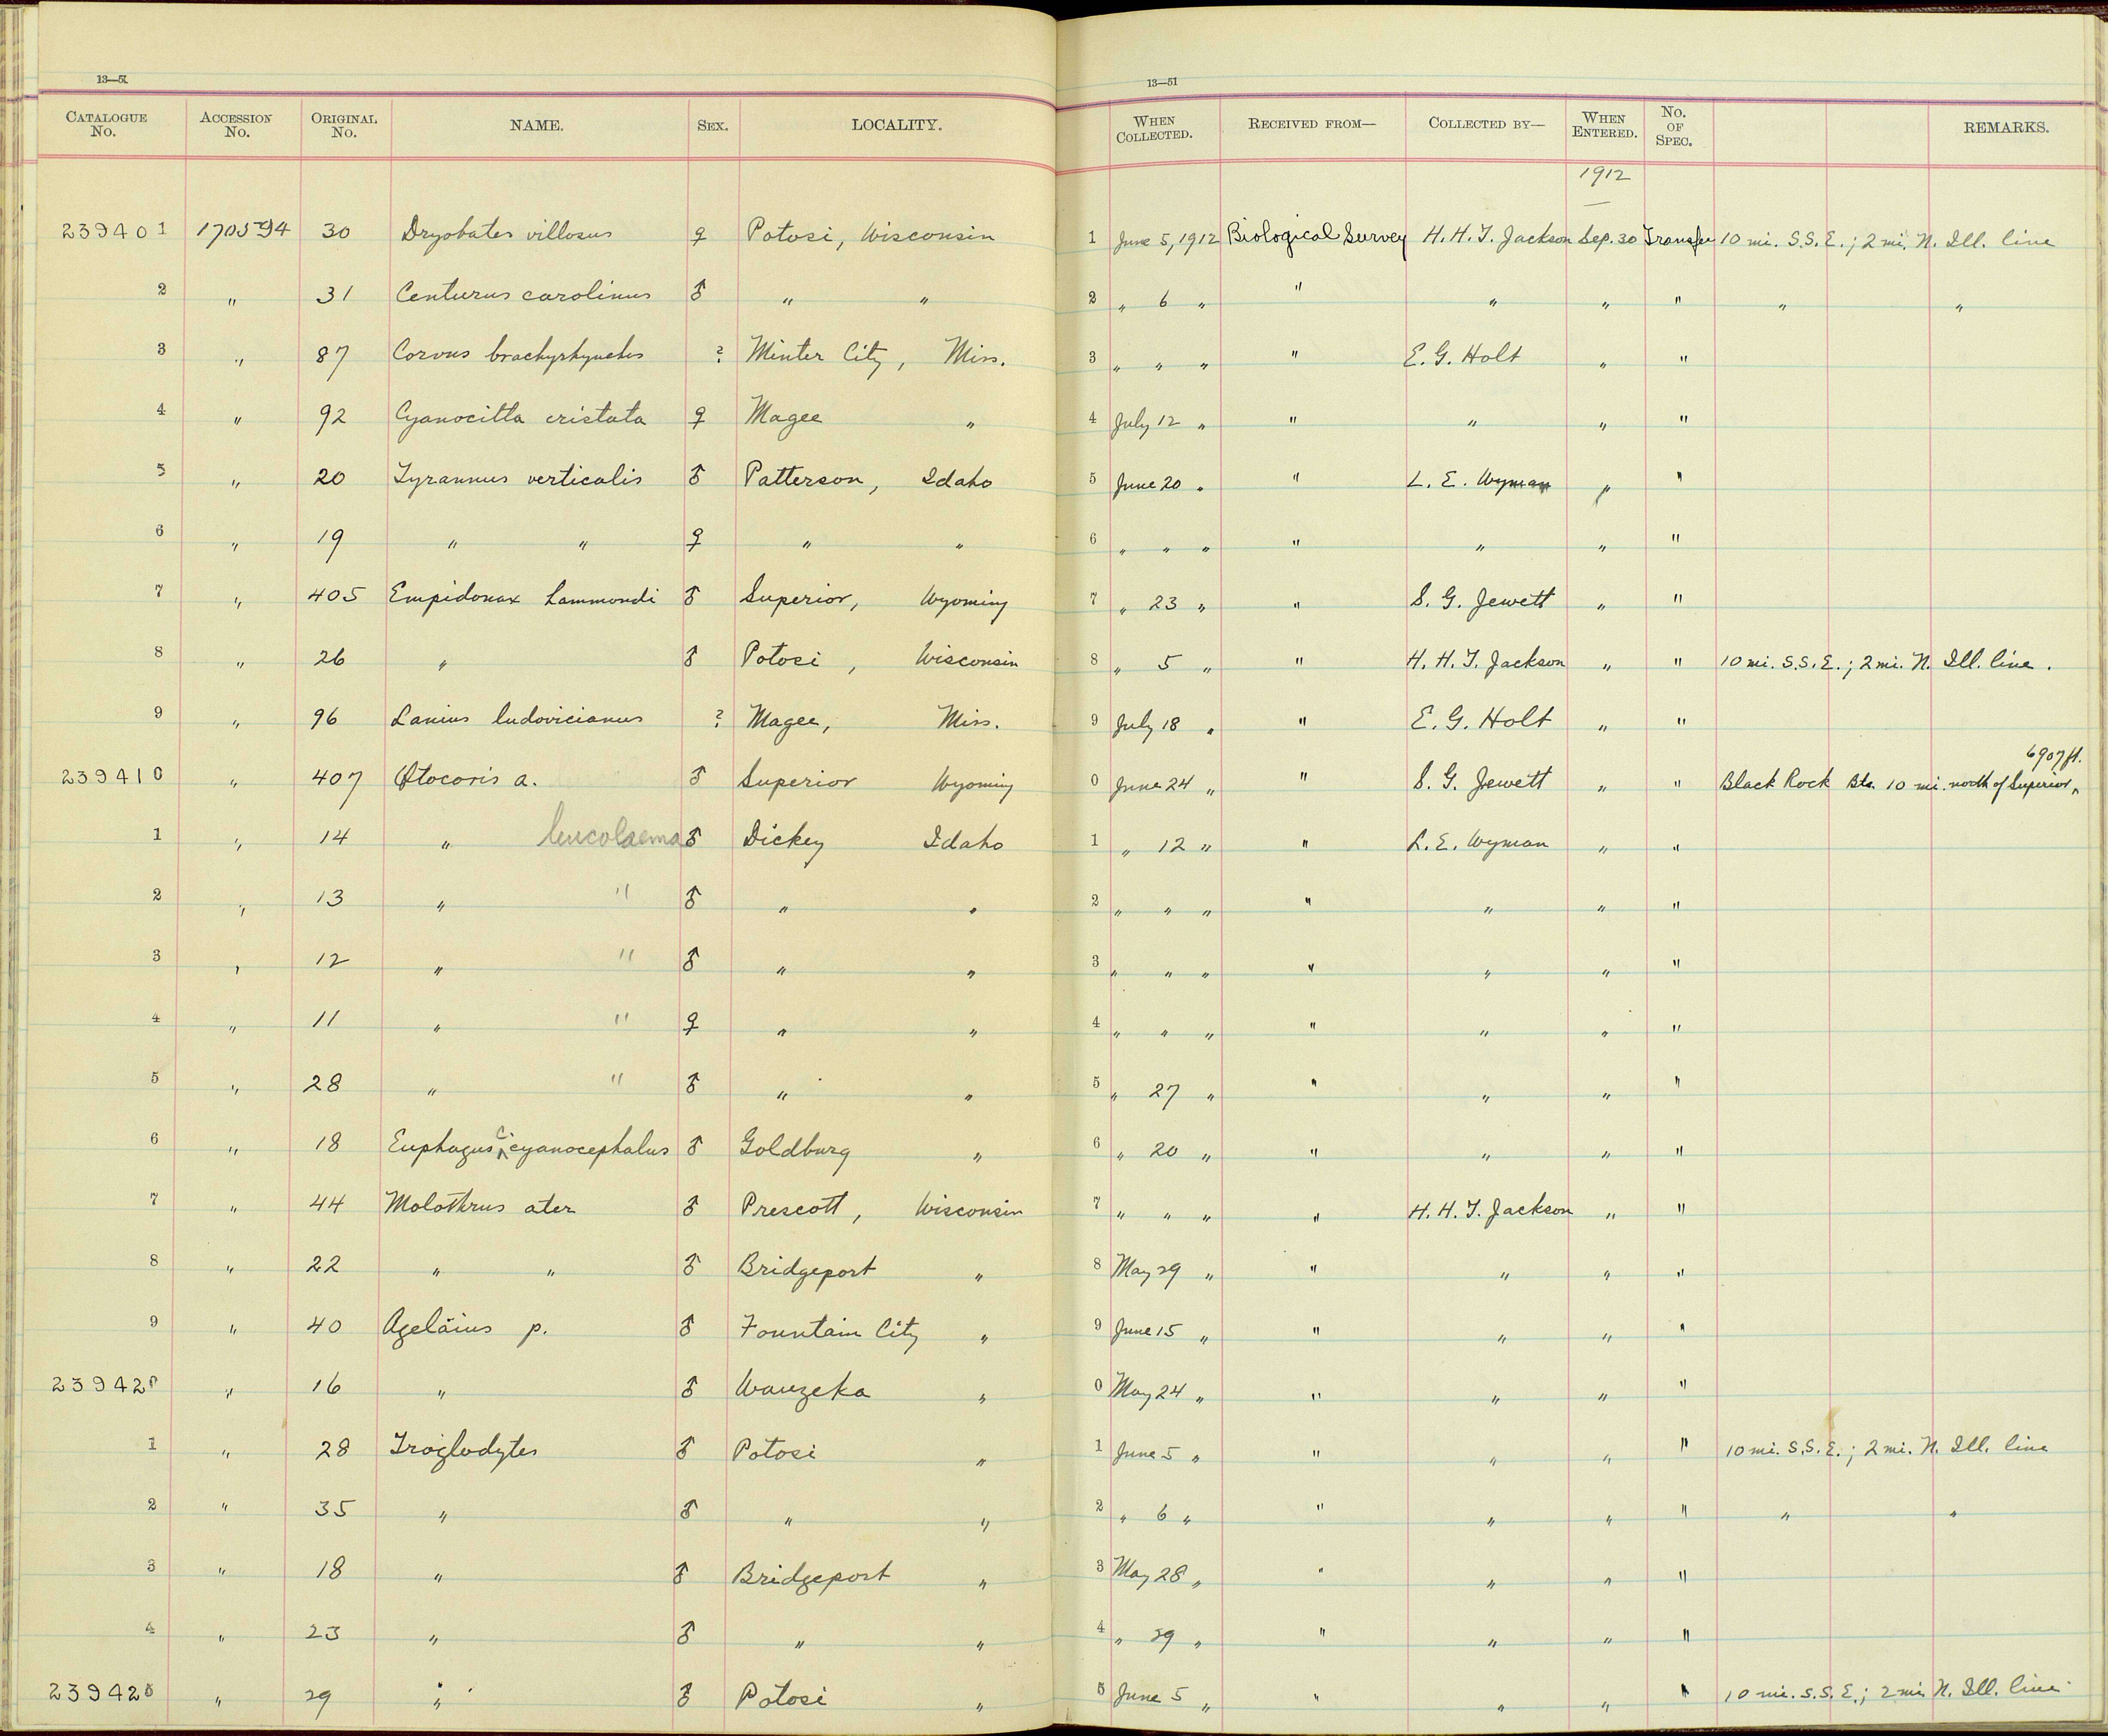 13—51
13—51
CATALOGUE No. ACCESSION No. ORIGINAL No. NAME. SEX. LOCALITY. WHEN COLLECTED. RECEIVED FROM— COLLECTED BY— WHEN ENTERED. No. OF SPEC. REMARKS.
1912
239401 170594 30 Dryobates villosus ♀ Potosi, Wisconsin 1 June 5, 1912 Biological Survey H. H. T. Jackson Sep. 30 Transfer 10 mi. S.S.E.; 2 mi. N. Ill. line
2 " 31 Centurus carolinus ♂ " " 2 " 6 " " " " " " "
3 " 87 Corvus brachyrhynchos ? Minter City, Miss. 3 " " " " E. G. Holt " "
4 " 92 Cyanocitta cristata ♀ Magee " 4 July 12 " " " " "
5 " 20 Tyrannus verticalis ♂ Patterson, Idaho 5 June 20 " " L. E. Wyman " "
6 " 19 " " ♀ " " 6 " " " " " " "
7 " 405 Empidonax hammondi ♂ Superior, Wyoming 7 " 23 " " S. G. Jewett " "
8 " 26 " ♂ Potosi, Wisconsin 8 " 5 " " H. H. T. Jackson " " 10 mi. S.S.E.; 2 mi. N. Ill. line.
9 " 96 Lanius ludovicianus ? Magee, Miss. 9 July 18 " " E. G. Holt " "
6907 ft.
239410 " 407 Otocoris a. ♂ Superior Wyoming 0 June 24 " " S. G. Jewett " " Black Rock Bts. 10 mi. north of Superior "
1 " 14 " leucolaema ♂ Dickey Idaho 1 " 12 " " L. E. Wyman " "
2 " 13 " " ♂ " " 2 " " " " " " "
3 " 12 " " ♂ " " 3 " " " " " " "
4 " 11 " " ♀ " " 4 " " " " " " "
5 " 28 " " ♂ " " 5 " 27 " " " " "
6 " 18 Euphagus c. cyanocephalus ♂ Goldburg " 6 " 20 " " " " "
7 " 44 Molothrus ater ♂ Prescott, Wisconsin 7 " " " " H. H. T. Jackson " "
8 " 22 " " ♂ Bridgeport " 8 May 29 " " " " "
9 " 40 Agelaius p. ♂ Fountain City " 9 June 15 " " " " "
239420 " 16 " ♂ Wauzeka " 0 May 24 " " " " "
1 " 28 Troglodytes ♂ Potosi " 1 June 5 " " " " " 10 mi. S.S.E.; 2 mi. N. Ill. line
2 " 35 " ♂ " " 2 " 6 " " " " " " "
3 " 18 " ♂ Bridgeport " 3 May 28 " " " " "
4 " 23 " ♂ " " 4 " 29 " " " " "
239425 " 29 " ♂ Potosi " 5 June 5 " " " " " 10 mi. S.S.E.; 2 mi. N. Ill. line